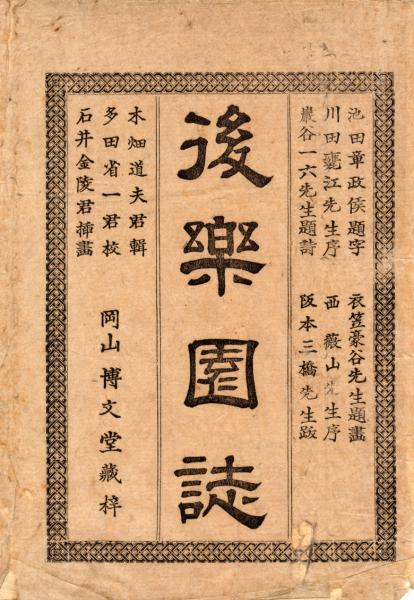 池田章政侯題字　衣笠豪谷先生題畫
川田甕江先生序　西薇山先生序
巖谷一六先生題詩　阪本三橋先生跋
後樂園誌
木畑道夫君輯
多田省一君校
石井金陵君揷畫
岡山博文堂藏梓